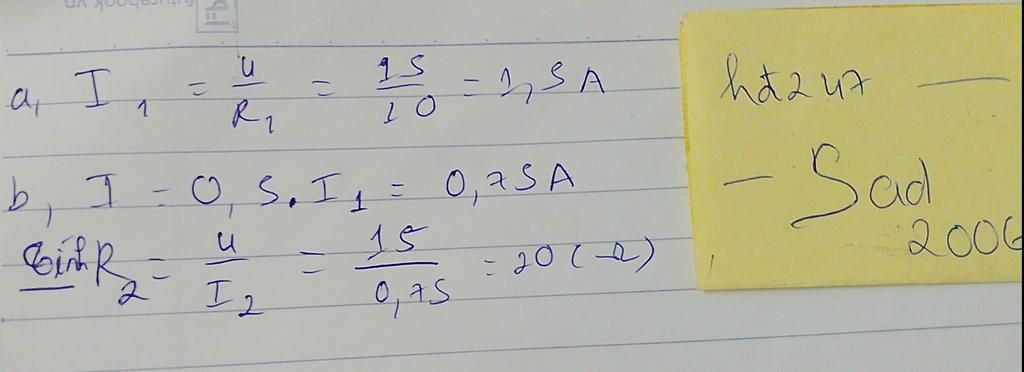 a, I1 = U/R1 = 15/10 = 1,5A
b, I = 0,5.I1 = 0,75A
R2 = U/I2 = 15/0,75 = 20 (Ω)
hđ247 —
- Sad
2006